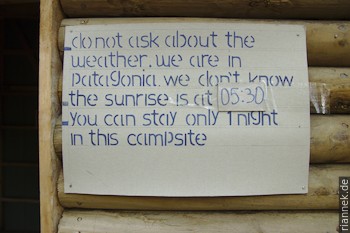 do not ask about the
weather. we are in
patagonia. we don't know
the sunrise is at 05:30
you can stay only 1 night
in this campsite
riannek.de